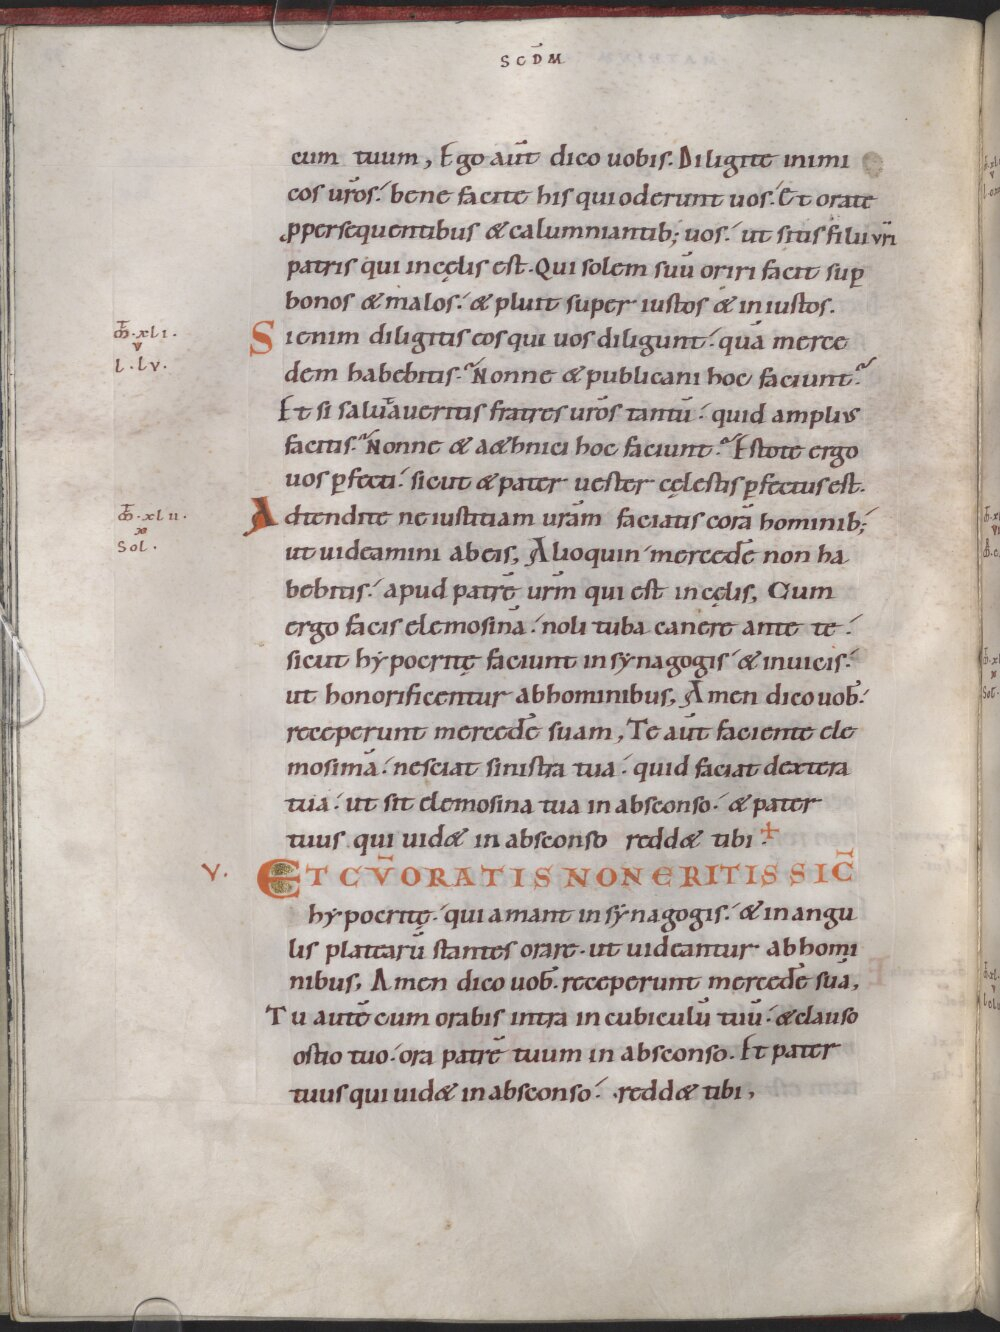 SCD̄M
cum tuum, Ego aūt dico uobis. Diligite inimi
cos ur̄os. bene facite his qui oderunt uos. Et orate
ꝓpersequentibus & calumniantib; uos. ut sitis filii vr̄i
patris qui in cęlis est. Qui solem suū oriri facit suꝑ
bonos & malos. & pluit super iustos & iniustos.
m̄t.xli.
v
l.lv.
Si enim diligitis eos qui uos diligunt. quā merce
dem habebitis. Nonne & publicani hoc faciunt.
Et si salutaueritis fratres ur̄os tantū. quid amplius
facitis. Nonne & a&hnici hoc faciunt. Estote ergo
uos ꝑfecti. sicut & pater uester cęlestis ꝑfectus est.
m̄t.xlii.
x
Sol.
Adtendite ne iustitiam urām faciatis corā hominib;
ut uideamini ab eis, Alioquin mercedē non ha
bebitis. apud patrē ur̄m qui est in cęlis, Cum
ergo facis elemosinā. noli tuba canere ante te.
sicut hẏpocritę faciunt in sẏnagogis & in uicis.
ut honorificentur ab hominibus, Amen dico uob̄.
receperunt mercedē suam, Te aūt faciente ele
mosimā. nesciat sinistra tua. quid faciat dextera
tua. ut sit elemosina tua in absconso. & pater
tuus qui uid& in absconso redd& tibi.
V. ET CV̄ ORATIS NON ERITIS SIC̄
hẏpocritę. qui amant in sẏnagogis. & in angu
lis platearū stantes orare. ut uideantur ab homi
nibus, Amen dico uob̄. receperunt mercedē suā,
Tu autē cum orabis intra in cubiculū tuū. & clauso
ostio tuo. ora patrē tuum in absconso. Et pater
tuus qui uid& in absconso. redd& tibi,